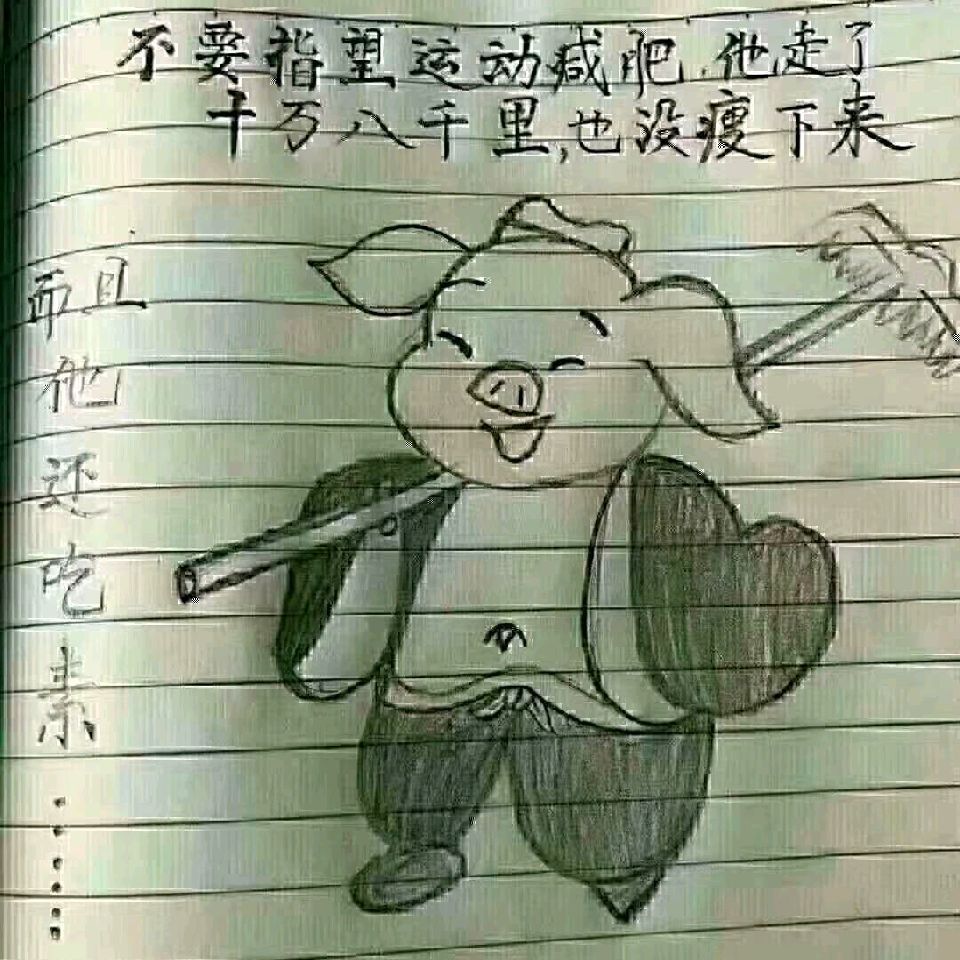 不要指望运动减肥.他走了
十万八千里,也没瘦下来
而且他还吃素......